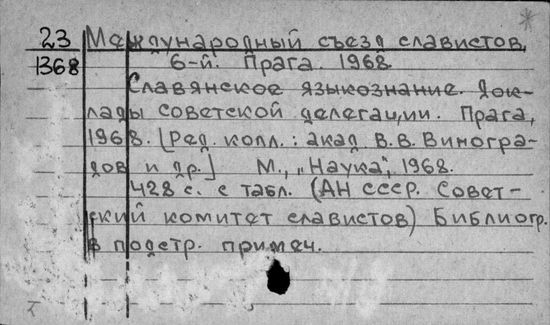 23 Международный съезд славистов,
1368 6-й. Прага. 1968.
Славянское языкознание. Док-
лады советской делегации. Прага,
1968. [Ред. колл.: акад. В.В. Виногра-
дов и др.] М., „Наука", 1968.
428 с. с табл. (АН СССР. Совет-
ский комитет славистов) Библиогр.
в подстр. примеч.